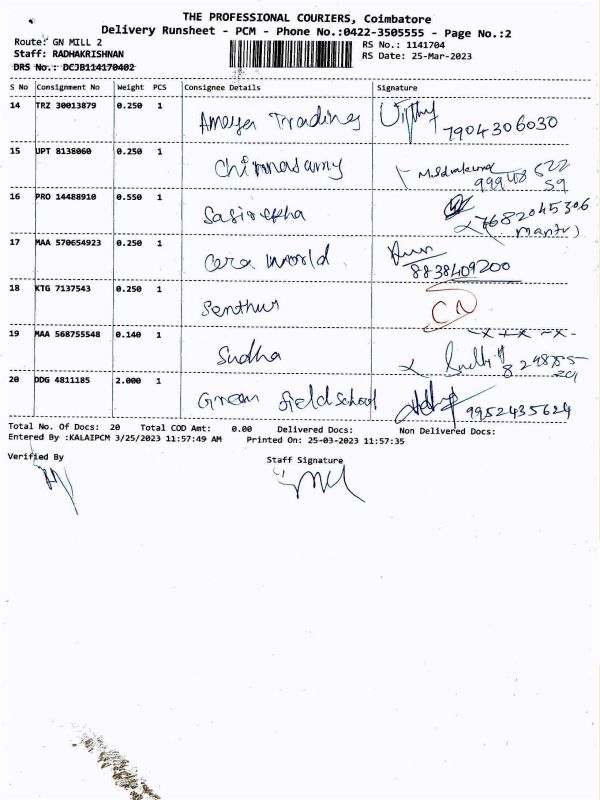 THE PROFESSIONAL COURIERS, Coimbatore
Delivery Runsheet - PCM - Phone No.:0422-3505555 - Page No.:2
Route: GN MILL 2
RS No.: 1141704
Staff: RADHAKRISHNAN
RS Date: 25-Mar-2023
DRS No.: DCJB114170402
S No Consignment No Weight PCS Consignee Details Signature
14 TRZ 30013879 0.250 1 Ameya Tradings 7904306030
15 UPT 8138060 0.250 1 Chinnasamy
16 PRO 14488910 0.550 1 Sasirekha 7682045306
17 MAA 570654923 0.250 1 Cera World 8838409200
18 KTG 7137543 0.250 1 Senthur CN
19 MAA 568755548 0.140 1 Sudha
20 DDG 4811185 2.000 1 Green field school 9952435624
Total No. Of Docs: 20 Total COD Amt: 0.00 Delivered Docs: Non Delivered Docs:
Entered By :KALAIPCM 3/25/2023 11:57:49 AM Printed On: 25-03-2023 11:57:35
Verified By Staff Signature